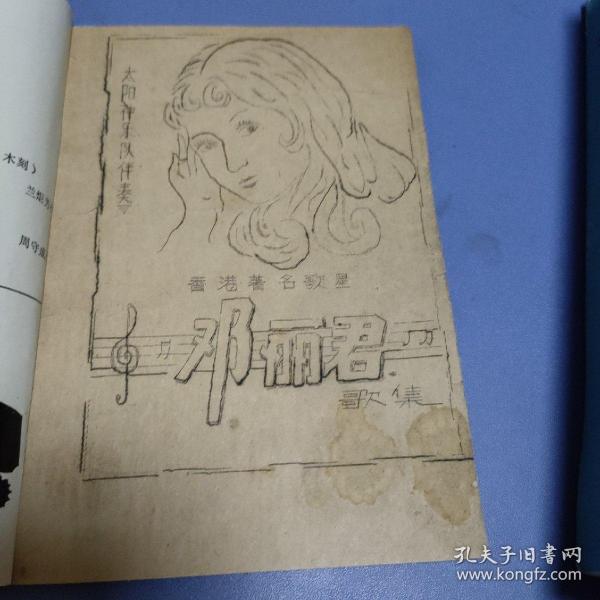 太阳神乐队伴奏
香港著名歌星
邓丽君
歌集
木刻）
周守
孔夫子旧书网
www.kongfz.com